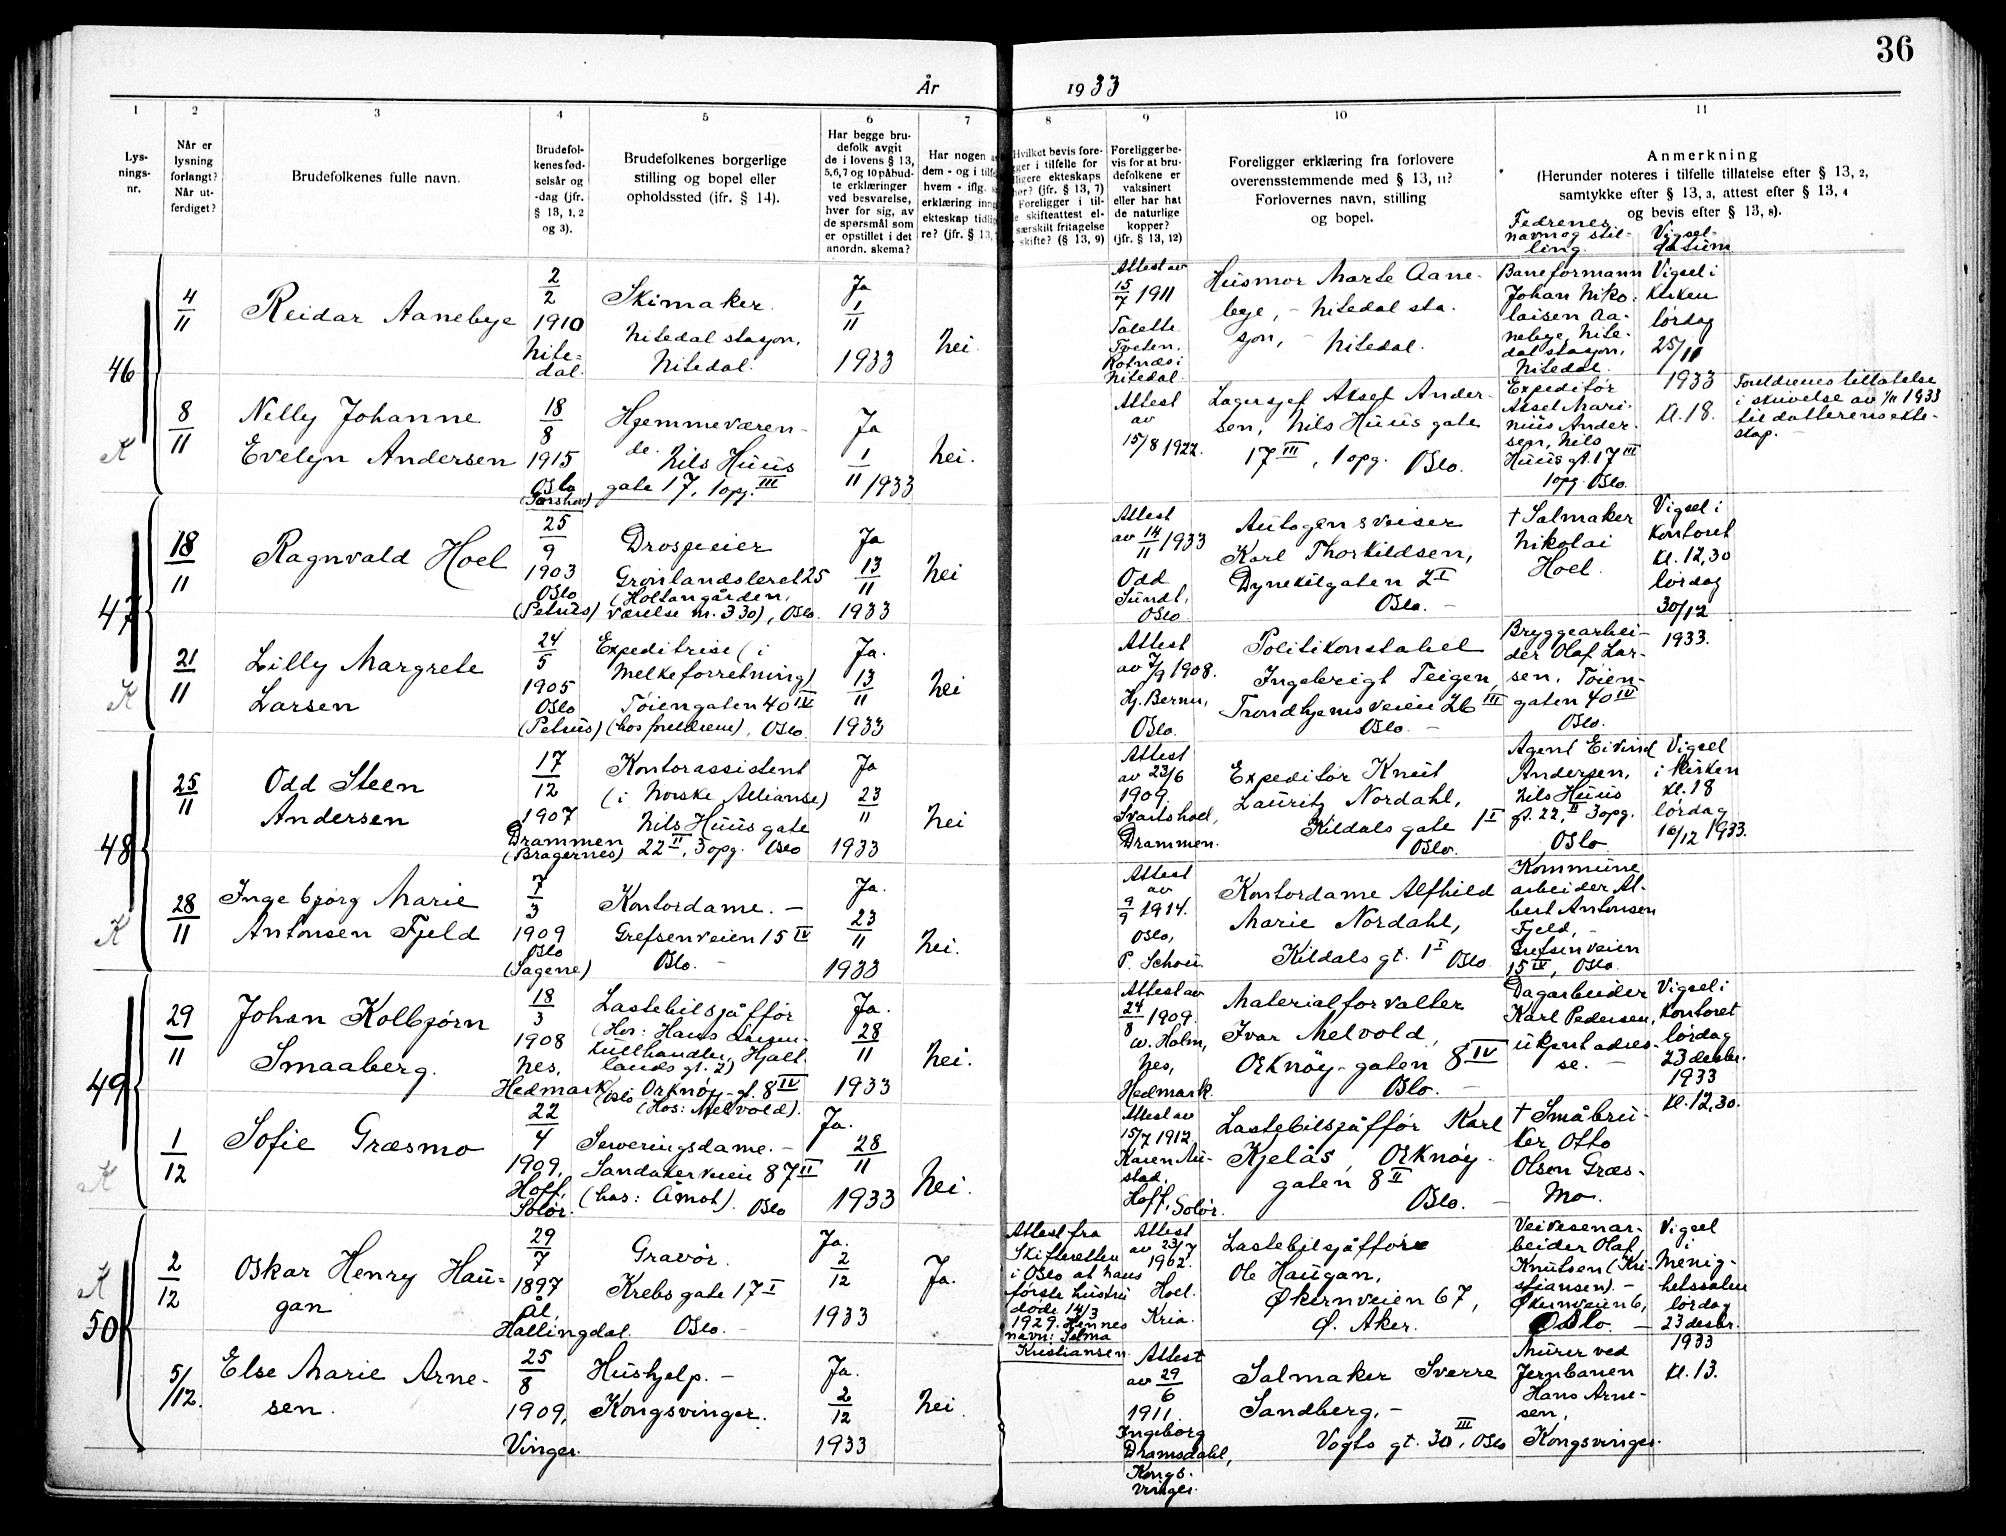 36
År 1933
1
2
3
4
5
6
7
8
9
10
11
Lys-
nings-
nr.
Når er
lysning
forlangt?
Når ut-
ferdiget?
Brudefolkenes fulle navn.
Brudefol-
kenes fød-
selsår og
-dag (jfr.
§ 13, 1, 2
og 3).
Brudefolkenes borgerlige
stilling og bopel eller
opholdssted (jfr. § 14).
Har begge bru-
defolk avgit
de i lovens § 13,
5, 6, 7 og 10 påbud-
te erklæringer
ved besvarelse,
hver for sig, av
de spørsmål som
er opstillet i det
anordn. skema?
Har nogen
dem - og i tilf
hvem - iflg.
erklæring inn
ekteskap tidli
re? (jfr. § 13,
Hvilket bevis fore-
ger i tilfelle for
ligere ekteskaps
hør? (jfr. § 13, 7)
Foreligger i til-
e skifteattest el-
særskilt fritagelse
skifte? (§ 13, 9)
Foreligger be-
vis for at bru-
defolkene er
vaksinert
eller har hat
de naturlige
kopper?
(jfr. § 13, 12)
Foreligger erklæring fra forlovere
overensstemmende med § 13, 11?
Forlovernes navn, stilling
og bopel.
Anmerkning
(Herunder noteres i tilfelle tillatelse efter § 13, 2,
samtykke efter § 13, 3, attest efter § 13, 4
og bevis efter § 13, 8).
Fedrenes
navn og stil-
ling.
Vigsel-
datum
46
4/11
Reidar Aanebye
2/2
1910
Nite-
dal.
Skimaker.
Nitedal stasjon,
Nitedal.
Ja
1/11
1933
Nei.
Attest av
15/7 1911
Tveten,
Rotnes i
Nitedal.
Husmor Marte Aane-
bye, - Nitedal sta-
sjon, - Nitedal.
Baneformann
Johan Niko-
laisen Aa-
nebye, Nite-
dal stasjon,
Nitedal.
Vigsel i
kirken
lørdag
25/11
1933
kl. 18.
K
8/11
Nelly Johanne
Evelyn Andersen
18/8
1915
Oslo
(Torshov)
Hjemmeværen-
de. Nils Huus
gate 17, 1 opg. III
Ja
1/11 1933
Nei.
Attest
av
15/8 1922.
Lagersjef Aksel Ander-
sen, Nils Huus gate
17 III, 1 opg. Oslo.
Expeditør
Aksel Mari-
nius Ander-
sen, Nils
Huus gt. 17 III
1 opg. Oslo.
Foreldrenes tillatelse
i skrivelse av 1/11 1933
til datterens ekte-
skap. -
47
18/11
Ragnvald Hoel
25/9
1903
Oslo
(Petrus)
Drosjeeier
Grønlandsleret 25
(Holtangården,
værelse nr. 330), Oslo.
Ja
13/11
1933
Nei
Attest
av 14/11 1933
Odd
Sundt,
Oslo
Autogensveiser
Karl Thorkildsen,
Dynekilgaten 2 I
Oslo. -
† Salmaker
Nikolai
Hoel.
Vigsel i
kontoret
kl. 12,30
lørdag
30/12
1933.
K
21/11
Lilly Margrete
Larsen
24/5
1905
Oslo
(Petrus)
Expeditrise (i
melkeforretning)
Tøiengaten 40 IV
(hos foreldrene), Oslo.
Ja.
13/11
1933
Nei
Attest
av 7/9 1908.
Hj. Berner,
Oslo.
Politikonstabel
Ingebrigt Teigen,
Trondhjemsveien 26 III
Oslo. -
Bryggearbei-
der Olaf Lar-
sen, Tøien-
gaten 40 IV
Oslo.
48
25/11
Odd Steen
Andersen
17/12
1907
Drammen
(Bragernes)
Kontorassistent
(i Norske Allianse)
Nils Huus gate
22 II, 3 opg. Oslo
Ja
23/11
1933
Nei
Attest
av 23/6
1909.
Drammen.
Expeditør Knut
Lauritz Nordahl,
Kildals gate 1 I
Oslo.
Agent Eivind
Andersen,
Nils Huus
gt. 22, II 3 opg.
Oslo
Vigsel
i kirken
kl. 18
lørdag
16/12 1933.
K
28/11
Ingebjørg Marie
Antonsen Fjeld
7/3
1909
Oslo
(Sagene)
Kontordame. -
Grefsenveien 15 IV
Oslo. -
Ja.
23/11
1933
Nei.
Attest
av
9/9 1914.
Oslo,
P. Schou
Kontordame Alfhild
Marie Nordahl,
Kildals gt. 1 I Oslo
Kommune
arbeider Al-
bert Antonsen
Fjeld, -
Grefsenveien
15 IV, Oslo.
49
29/11
Johan Kolbjørn
Smaaberg.
18/3
1908
Nes,
Hedmark
Lastebilsjåffør
(Hos: Hans Larsen
kullhandler, Hjalt-
lands gt. 2)
Oslo Orknøy-gt. 8 IV
(Hos: Melvold).
Ja.
28/11
1933
Nei.
Attest av
24/8 1909.
W. Holm,
Nes,
Hedmark.
Materialforvalter
Ivar Melvold,
Orknøy-gaten 8 IV
Oslo. -
Dagarbeider
Karl Pedersen,
ukjent adres-
se. -
Vigsel i
kontoret
lørdag
23 desbr.
1933
kl. 12,30.
K
1/12
Sofie Græsmo
22/4
1909,
Hoff,
Solør.
Serveringsdame. -
Sandakerveien 87 II
(hos: Åmot). Oslo
Ja.
28/11
1933
Nei.
Attest av
15/7 1912
Karen Au-
stad,
Hoff, Solør.
Lastebilsjåffør Karl
Kjelås, Orknøy-
gaten 8 II
Oslo. -
† Småbru-
ker Otto
Olsen Græs-
mo.
K
50
2/12
Oskar Henry Hau-
gan
29/7
1897
Ål,
Hallingdal.
Gravør.
Krebs gate 17 I
Oslo. -
Ja.
2/12
1933
Ja.
Attest fra
Skifteretten
i Oslo at hans
første hustru
døde 14/3
1929. Hennes
navn: Selma
Kristiansen.
Attest
av 23/7
1902.
Hoel.
Kria.
Lastebilsjåffør
Ole Haugan,
Økernveien 67,
Ø. Aker.
Veivesenar-
beider Olaf
Knutsen (Kri-
stiansen). -
Økernveien 6,
Oslo. -
Vigsel
i
Menig-
hetssalen
lørdag
23 desbr.
1933
kl. 13.
5/12.
Else Marie Arne-
sen.
25/8
1909,
Vinger.
Hushjelp. -
Kongsvinger.
Ja.
2/12
1933
Nei.
Attest
av 29/6
1911.
Ingeborg
Dramsdahl,
Kongs-
vinger.
Salmaker Sverre
Sandberg, -
Vogts gt. 30 III, Oslo
Murer ved
Jernbanen
Hans Arne-
sen,
Kongsvinger.